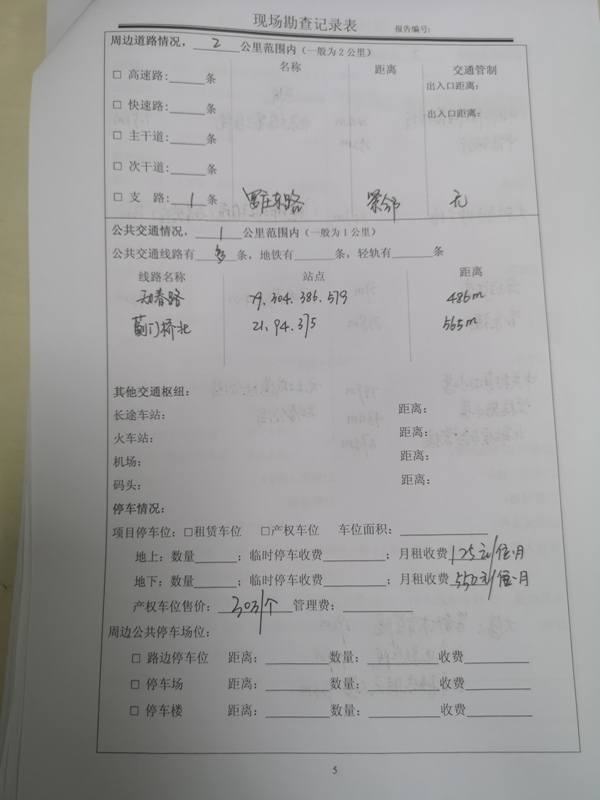 现场勘查记录表 报告编号:
周边道路情况，2公里范围内（一般为2公里）
名称 距离 交通管制
□ 高速路:____条 出入口距离:
□ 快速路:____条 出入口距离:
□ 主干道:____条
□ 次干道:____条
□ 支 路: 1 条 东路 紧邻 无
公共交通情况，1公里范围内（一般为1公里）
公共交通线路有 多 条，地铁有____条，轻轨有____条
线路名称 站点 距离
春路 79.304.386.579 486m
蓟门桥北 21.94.375 565m
其他交通枢纽:
长途车站: 距离:
火车站: 距离:
机场: 距离:
码头: 距离:
停车情况:
项目停车位: □租赁车位 □产权车位 车位面积:____
地上: 数量____; 临时停车收费____; 月租收费 125元/个·月
地下: 数量____; 临时停车收费____; 月租收费 550元/个·月
产权车位售价: 30万/个 管理费:____
周边公共停车场位:
□ 路边停车位 距离:____ 数量:____ 收费____
□ 停车场 距离:____ 数量:____ 收费____
□ 停车楼 距离:____ 数量:____ 收费____
5